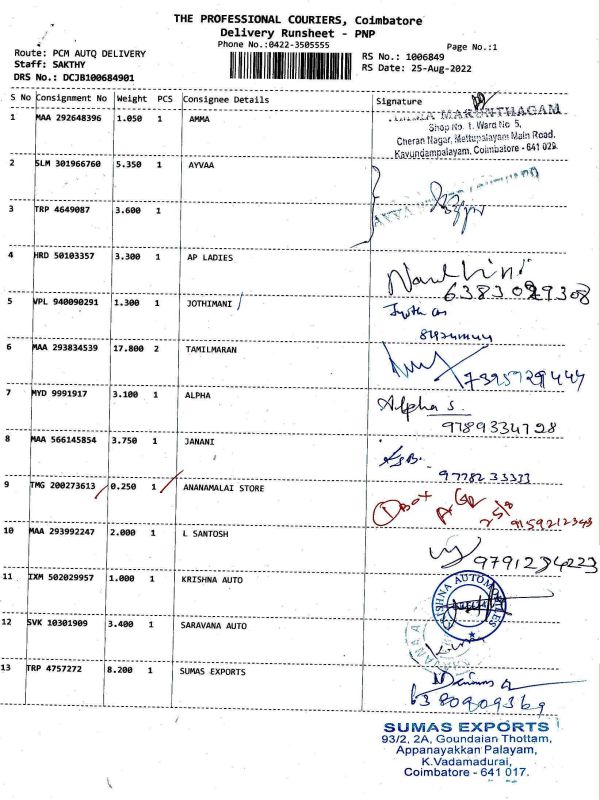 THE PROFESSIONAL COURIERS, Coimbatore
Delivery Runsheet - PNP
Phone No.:0422-3505555
Page No.:1
Route: PCM AUTO DELIVERY
Staff: SAKTHY
DRS No.: DCJB100684901
RS No.: 1006849
RS Date: 25-Aug-2022
S No Consignment No Weight PCS Consignee Details Signature
1 MAA 292648396 1.050 1 AMMA
MARUNTHAGAM
Shop No. 1. Ward No 5,
Cheran Nagar, Mettupalayam Main Road,
Kavundampalayam, Coimbatore - 641 029.
2 SLM 301966760 5.350 1 AYVAA
3 TRP 4649087 3.600 1
4 HRD 50103357 3.300 1 AP LADIES
6383029308
5 VPL 940090291 1.300 1 JOTHIMANI
6 MAA 293834539 17.800 2 TAMILMARAN
7395729444
7 MYD 9991917 3.100 1 ALPHA
Alpha S.
9789334728
8 MAA 566145854 3.750 1 JANANI
9778233333
9 TMG 200273613 0.250 1 ANANAMALAI STORE
1 Box
9159212343
10 MAA 293992247 2.000 1 L SANTOSH
9791234223
11 IXM 502029957 1.000 1 KRISHNA AUTO
KRISHNA AUTOMOBILES
12 SVK 10301909 3.400 1 SARAVANA AUTO
SARAVANA
13 TRP 4757272 8.200 1 SUMAS EXPORTS
6380809369
SUMAS EXPORTS
93/2, 2A, Goundaian Thottam,
Appanayakkan Palayam,
K.Vadamadurai,
Coimbatore - 641 017.